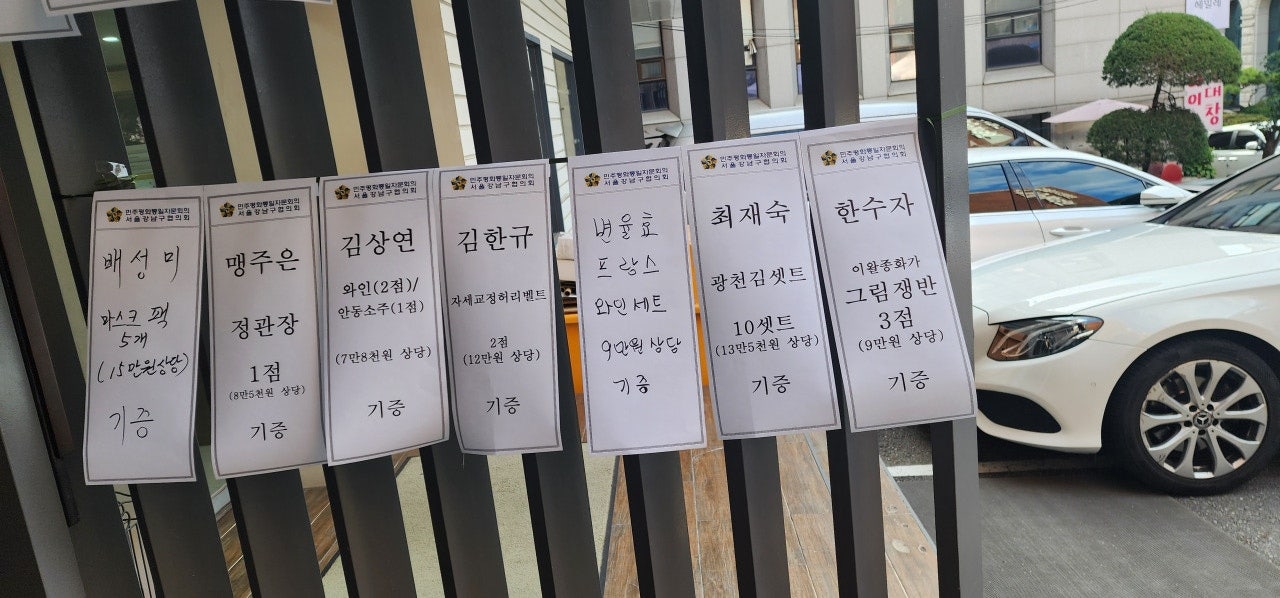 민주평화통일자문회의
서울강남구협의회
배성미
마스크 팩
5개
(15만원상당)
기증
민주평화통일자문회의
서울강남구협의회
맹주은
정관장
1점
(8만5천원 상당)
기증
민주평화통일자문회의
서울강남구협의회
김상연
와인(2점)/
안동소주(1점)
(7만8천원 상당)
기증
민주평화통일자문회의
서울강남구협의회
김한규
자세교정허리벨트
2점
(12만원 상당)
기증
민주평화통일자문회의
서울강남구협의회
변율효
프랑스
와인세트
9만원상당
기증
민주평화통일자문회의
서울강남구협의회
최재숙
광천김셋트
10셋트
(13만5천원 상당)
기증
민주평화통일자문회의
서울강남구협의회
한수자
이왈종화가
그림쟁반
3점
(9만원 상당)
기증
대
이창